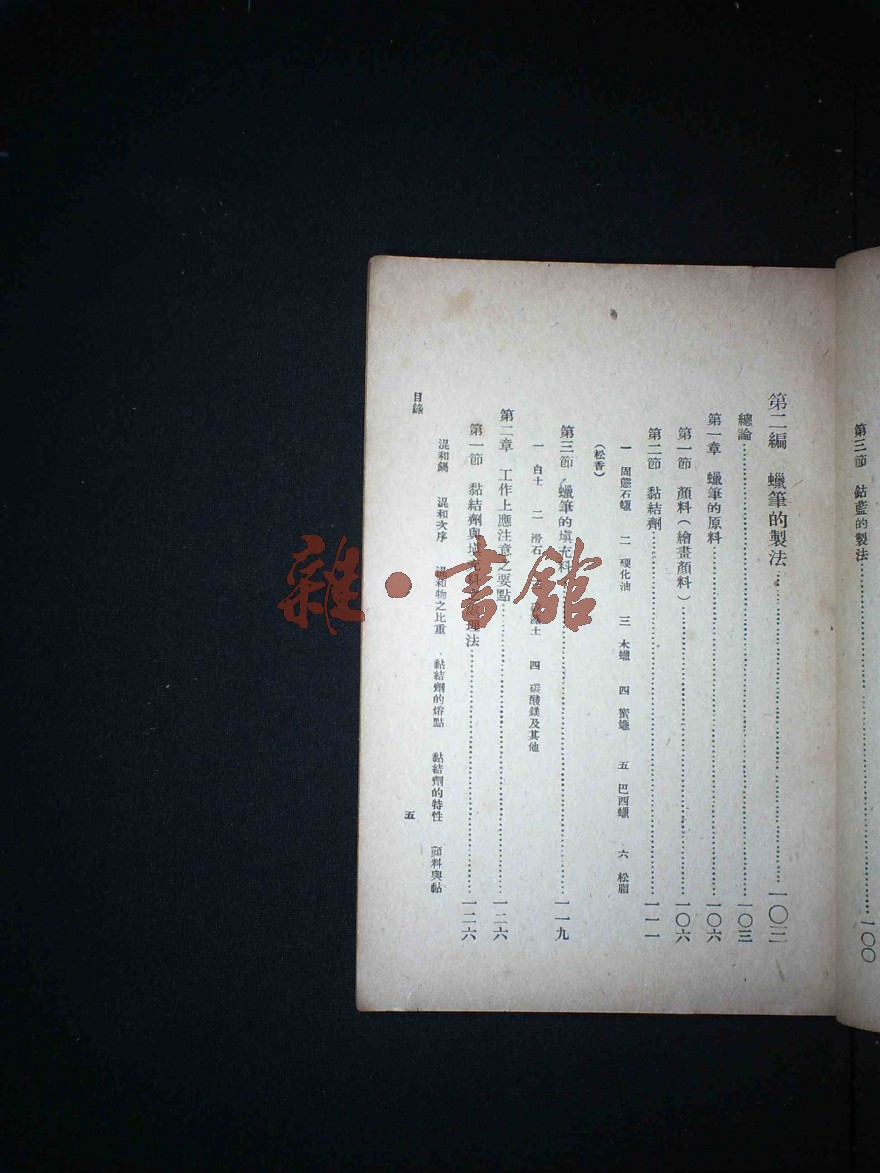 第三節　鈷藍的製法……一〇〇
第二編　蠟筆的製法……一〇三
總論……一〇三
第一章　蠟筆的原料……一〇六
第一節　顏料（繪畫顏料）……一〇六
第二節　黏結劑……一一一
一　固態石蠟　二　硬化油　三　木蠟　四　蜜蠟　五　巴西蠟　六　松脂
（松香）
第三節　蠟筆的填充料……一一九
一　白土　二　滑石　土　四　碳酸鎂及其他
第二章　工作上應注意之要點……一二六
第一節　黏結劑與填充料　理法……一二六
混和鍋　混和次序　混和物之比重　黏結劑的熔點　黏結劑的特性　料與黏
目錄
五
雜·書館